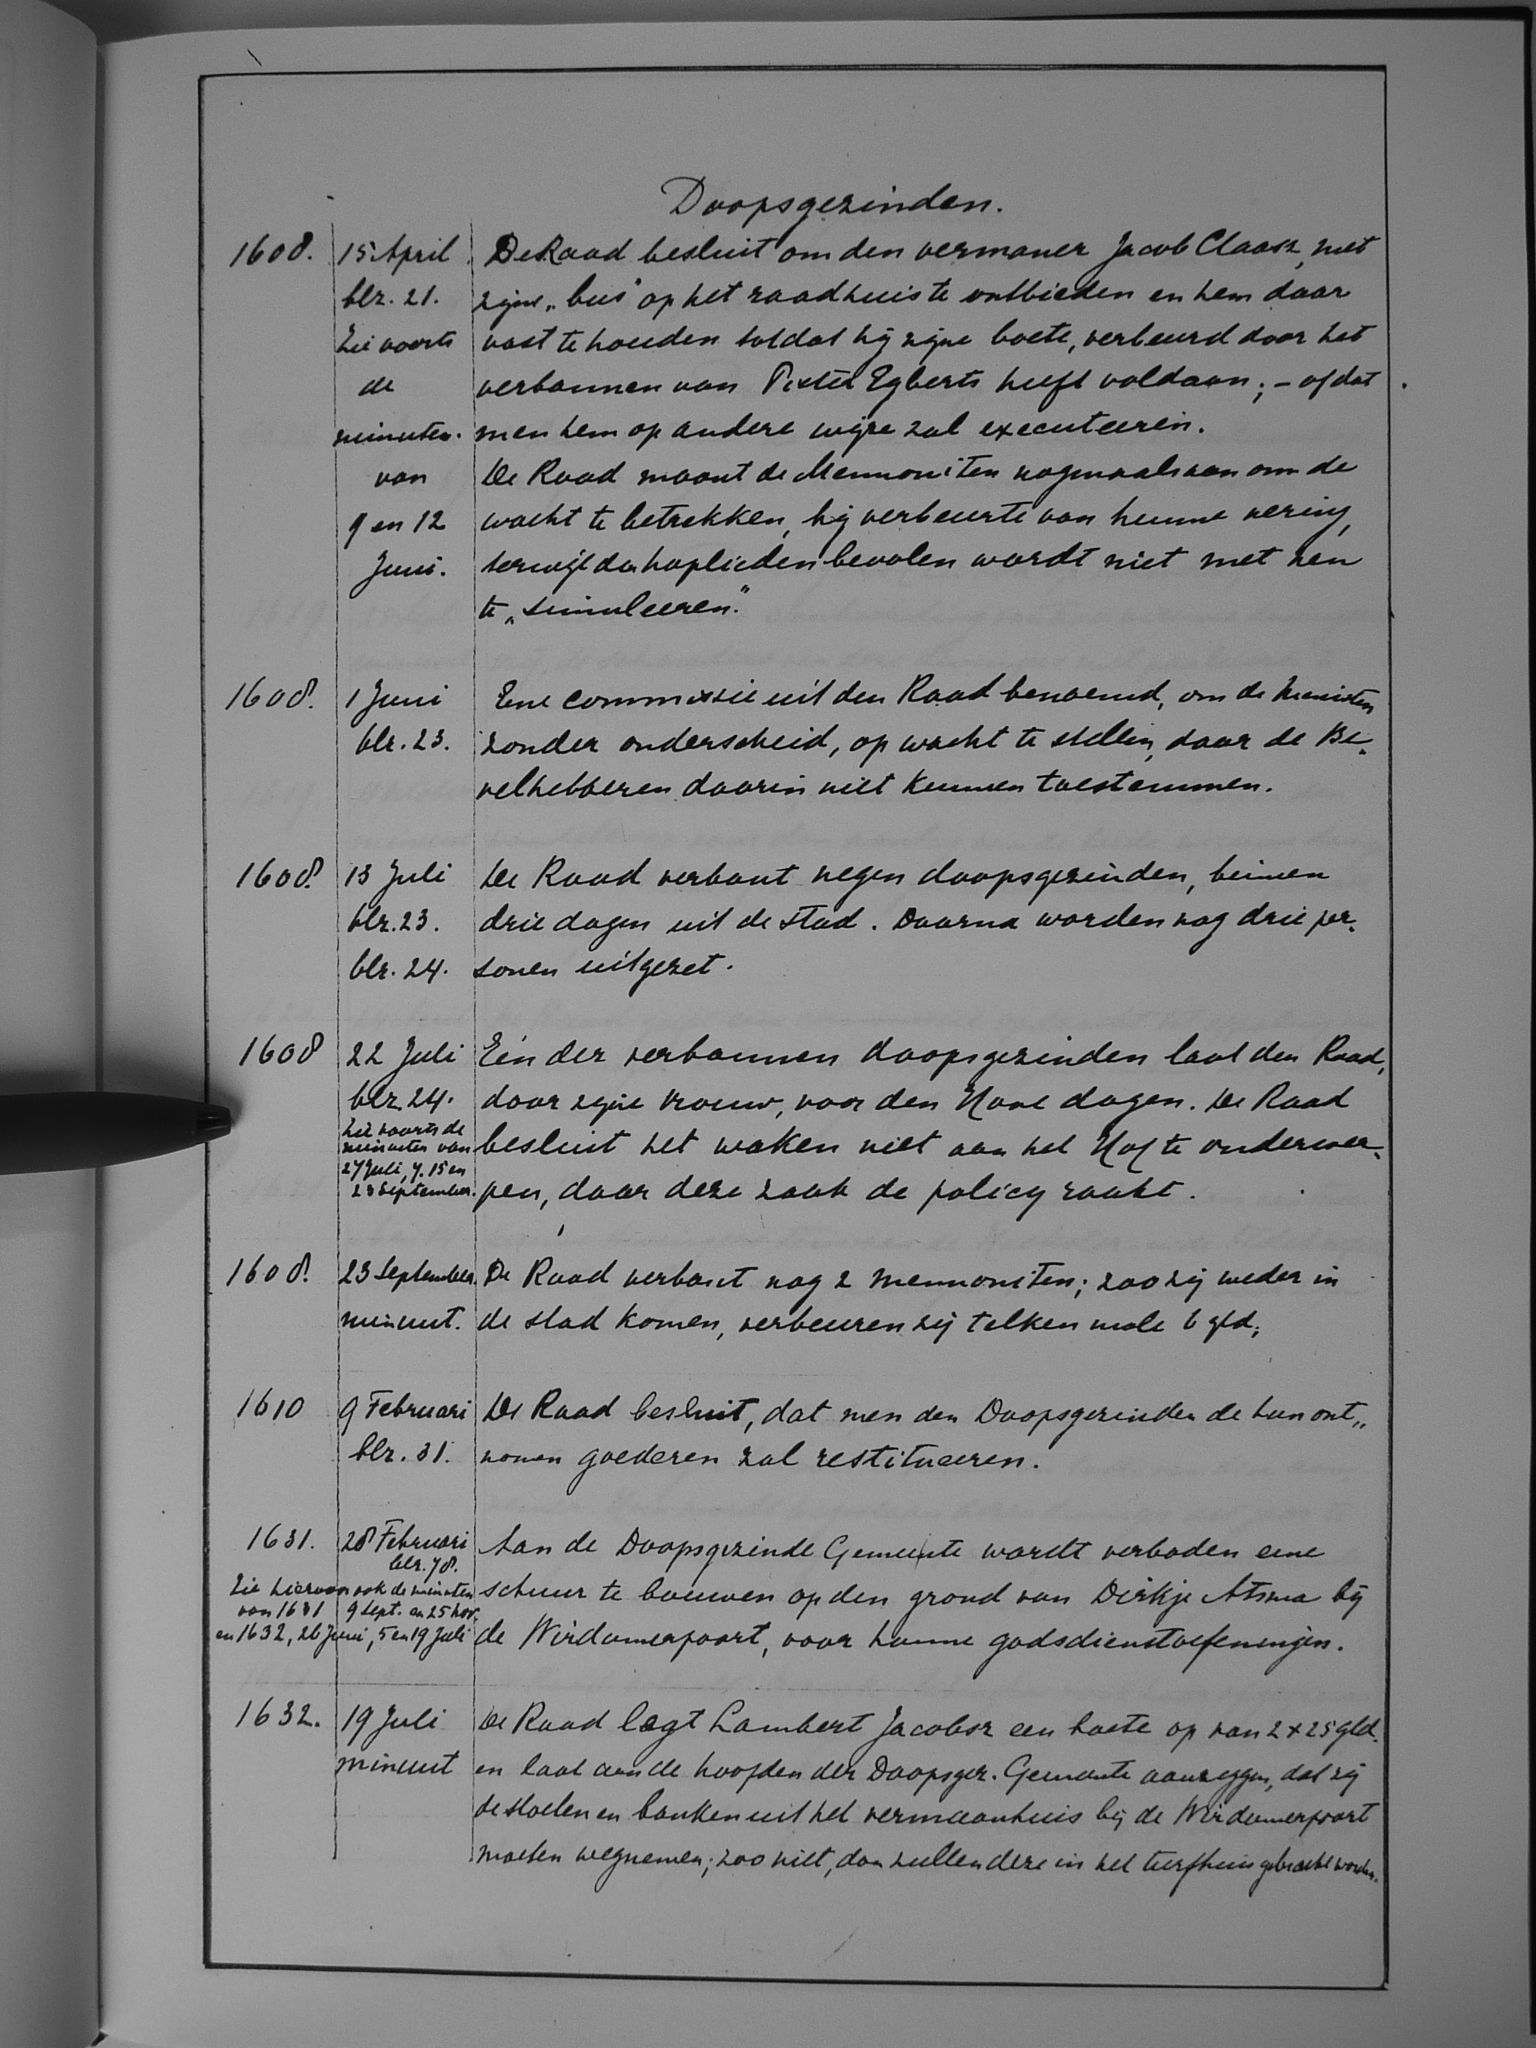 Doopsgezinden.
1608. 15 April De Raad besluit om den vermaner Jacob Claasz, met
blz. 21. zijne „bus" op het raadhuis te ontbieden en hem daar
Zie voorts vast te houden totdat hij zijne boete, verbeurd door het
de verbannen van Pieter Egberts heeft voldaan; – of dat
minuten. men hem op andere wijze zal executeeren.
van De Raad maant de Mennoniten nogmaals aan om de
9 en 12 wacht te betrekken, bij verbeurte van hunne nering,
Juni. terwijl den hoplieden bevolen wordt niet met hen
te „simuleeren."
1608. 1 Juni Eene commissie uit den Raad benoemd, om de Menisten
blz. 23. zonder onderscheid, op wacht te stellen, daar de Be-
velhebberen daarin niet kunnen toestemmen.
1608. 13 Juli De Raad verbant negen doopsgezinden, binnen
blz. 23. drie dagen uit de stad. Daarna worden nog drie per-
blz. 24. sonen uitgezet.
1608 22 Juli Eén der verbannen doopsgezinden laat den Raad,
blz. 24. door zijne vrouw, voor den Hove dagen. De Raad
Zie voorts de
minuten van besluit het waken niet aan het Hof te onderwer-
27 Juli, 7. 15 en
23 September. pen, daar deze zaak de policy raakt.
1608. 23 September De Raad verbant nog 2 Mennoniten; zoo zij weder in
minuut. de stad komen, verbeuren zij telken male 6 gld;
1610 9 Februari De Raad besluit, dat men den Doopsgezinden de hun ont„
blz. 31. nomen goederen zal restitueeren.
1631. 28 Februari Aan de Doopsgezinde Gemeente wordt verboden eene
blz. 78.
Zie hiervan ook de minuten schuur te bouwen op den grond van Dirkje Atsma bij
van 1631 9 Sept. en 25 Nov.
en 1632, 26 Juni, 5 en 19 Juli de Wirdumerpoort, voor hunne godsdienstoefeningen.
1632. 19 Juli De Raad legt Lambert Jacobsz een boete op van 2 x 25 gld.
minuut en laat aan de hoofden der Doopsgez. Gemeente aanzeggen, dat zij
de stoelen en banken uit het vermaanhuis bij de Wirdumerpoort
moeten wegnemen; zoo niet, dan zullen deze in het turfhuis gebracht worden.